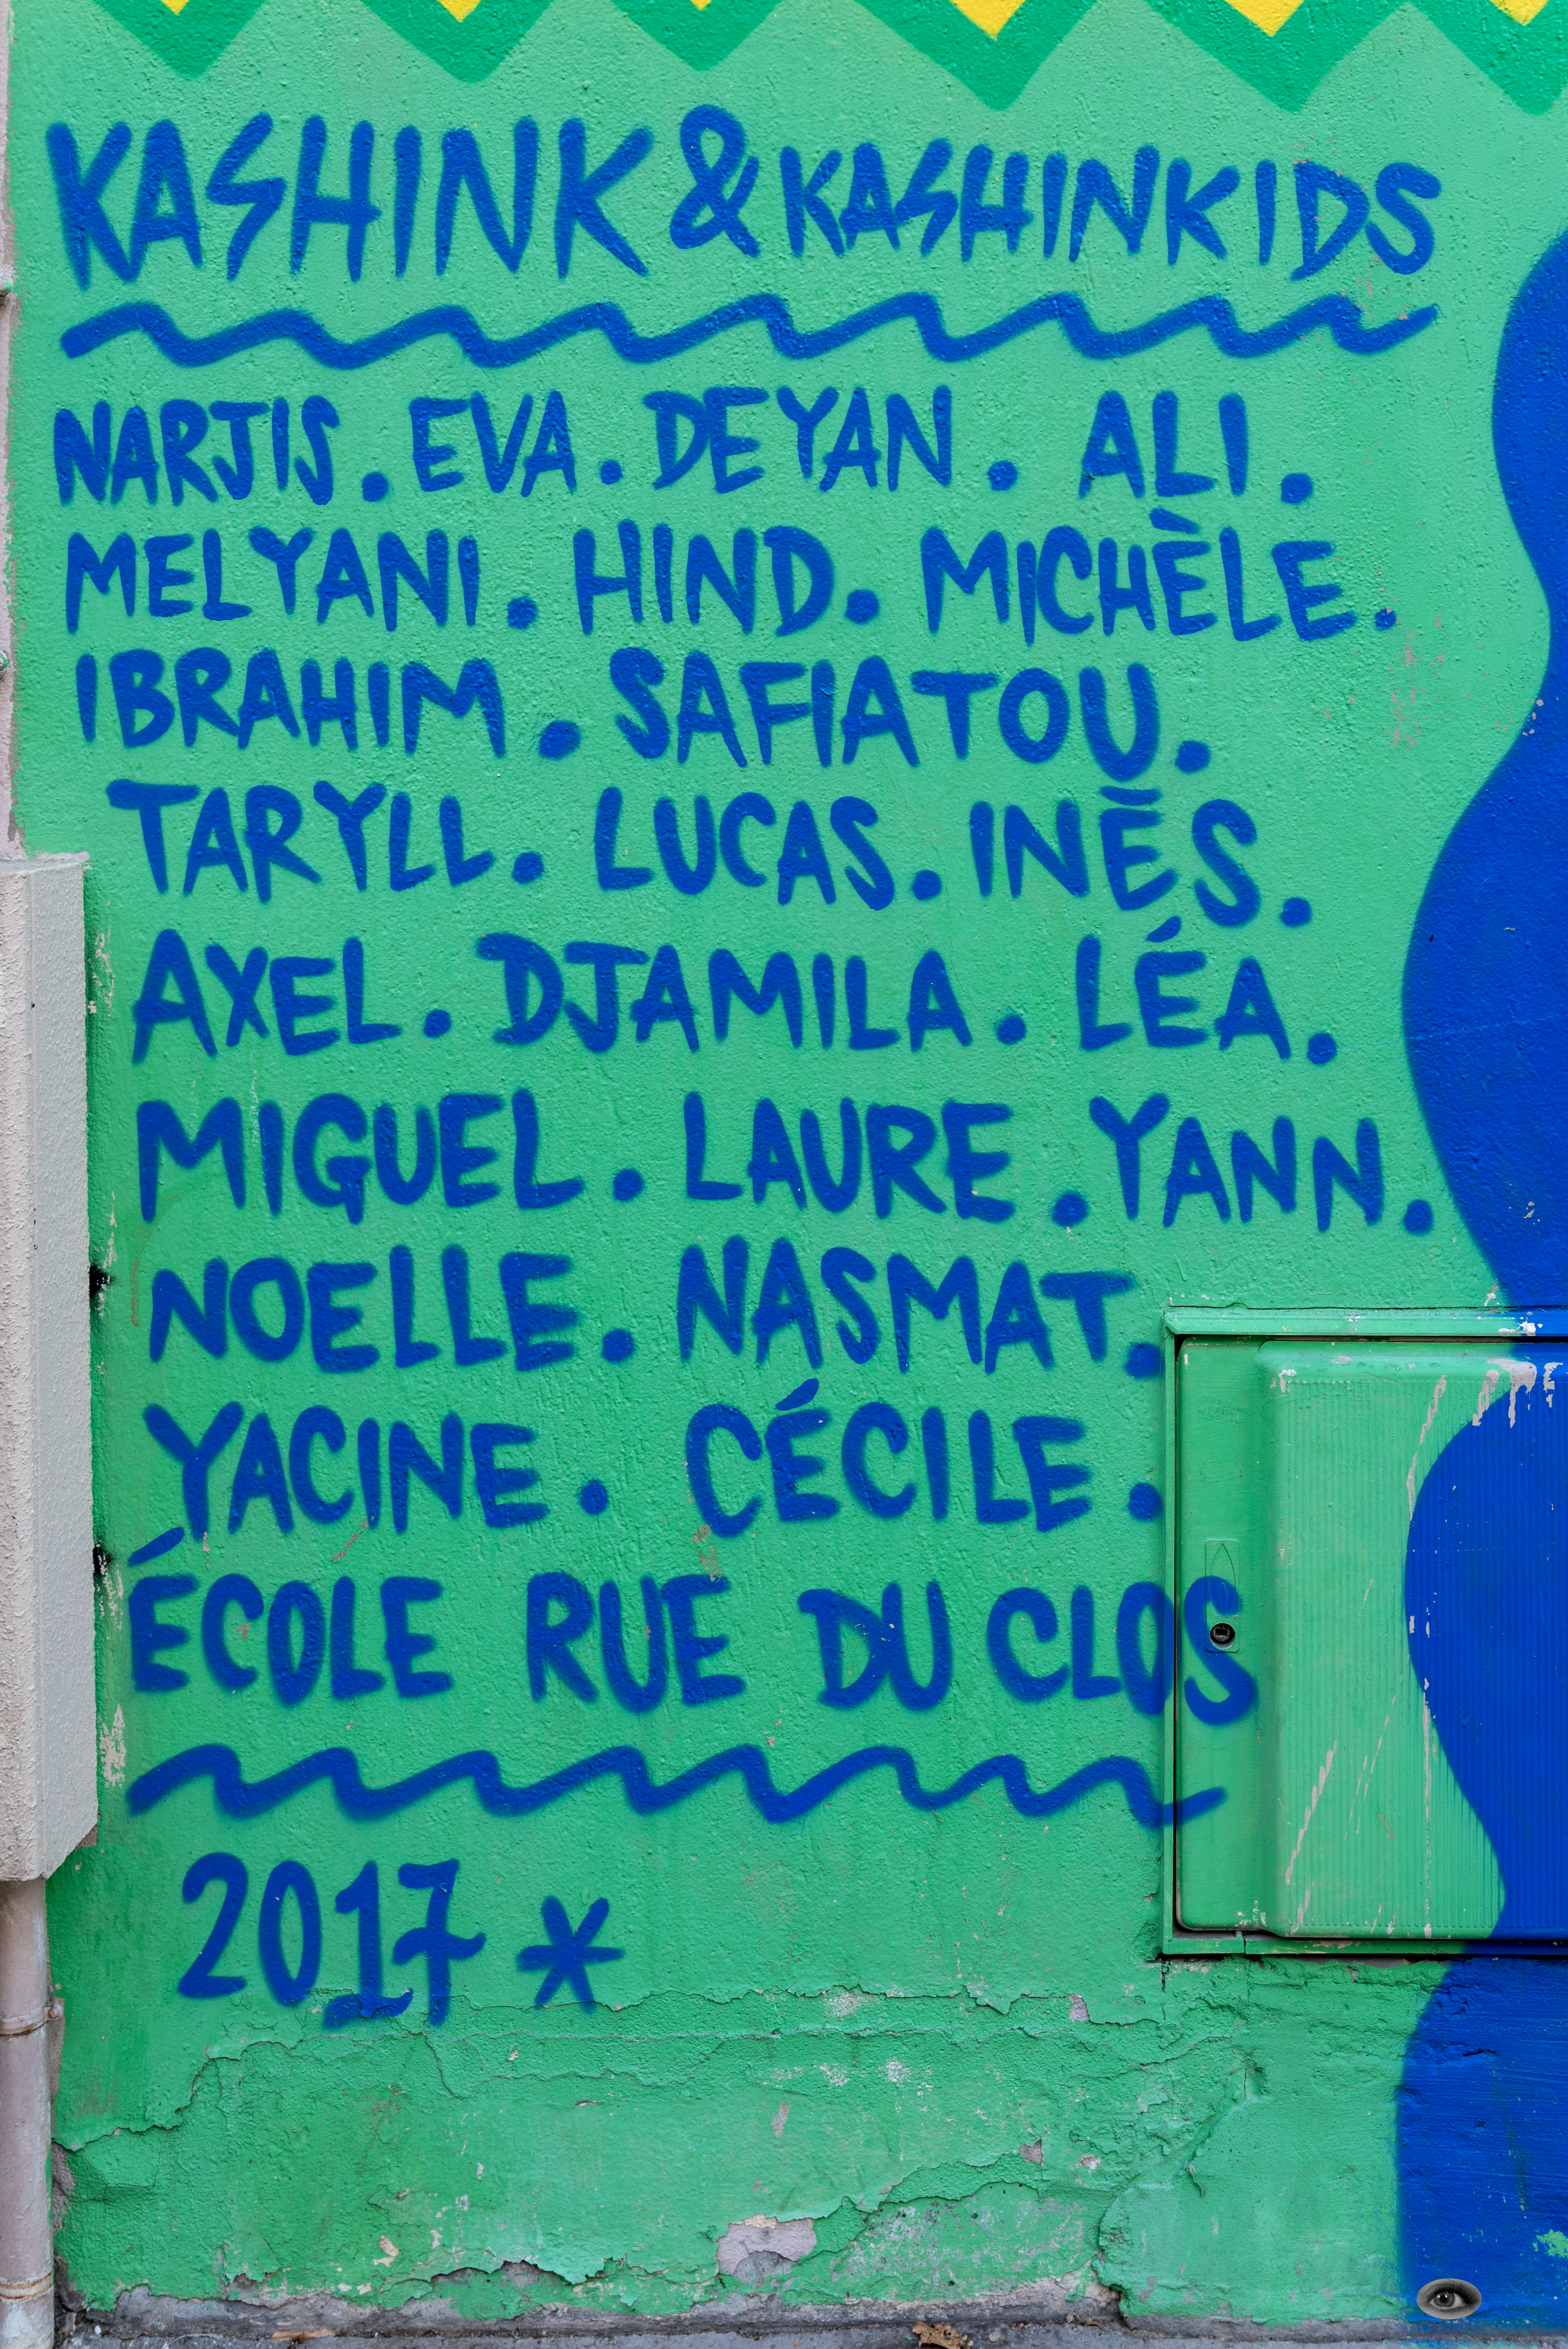 KASHINK & KASHINKIDS
NARJIS . EVA . DEYAN . ALI .
MELYANI . HIND . MICHÈLE .
IBRAHIM . SAFIATOU .
TARYLL . LUCAS . INÈS .
AXEL . DJAMILA . LÉA .
MIGUEL . LAURE . YANN .
NOELLE . NASMAT .
YACINE . CÉCILE .
ÉCOLE RUE DU CLOS
2017 *